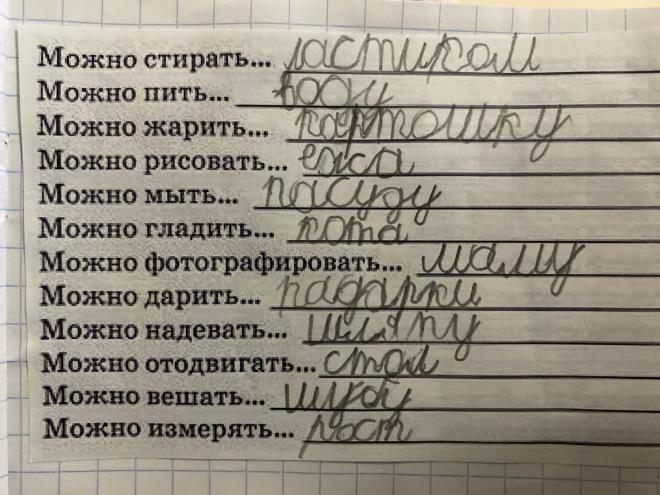 Можно стирать... ластиком
Можно пить... воду
Можно жарить... картошку
Можно рисовать... ежа
Можно мыть... пасуду
Можно гладить... кота
Можно фотографировать... маму
Можно дарить... падарки
Можно надевать... шляпу
Можно отодвигать... стол
Можно вешать... шубу
Можно измерять... рост